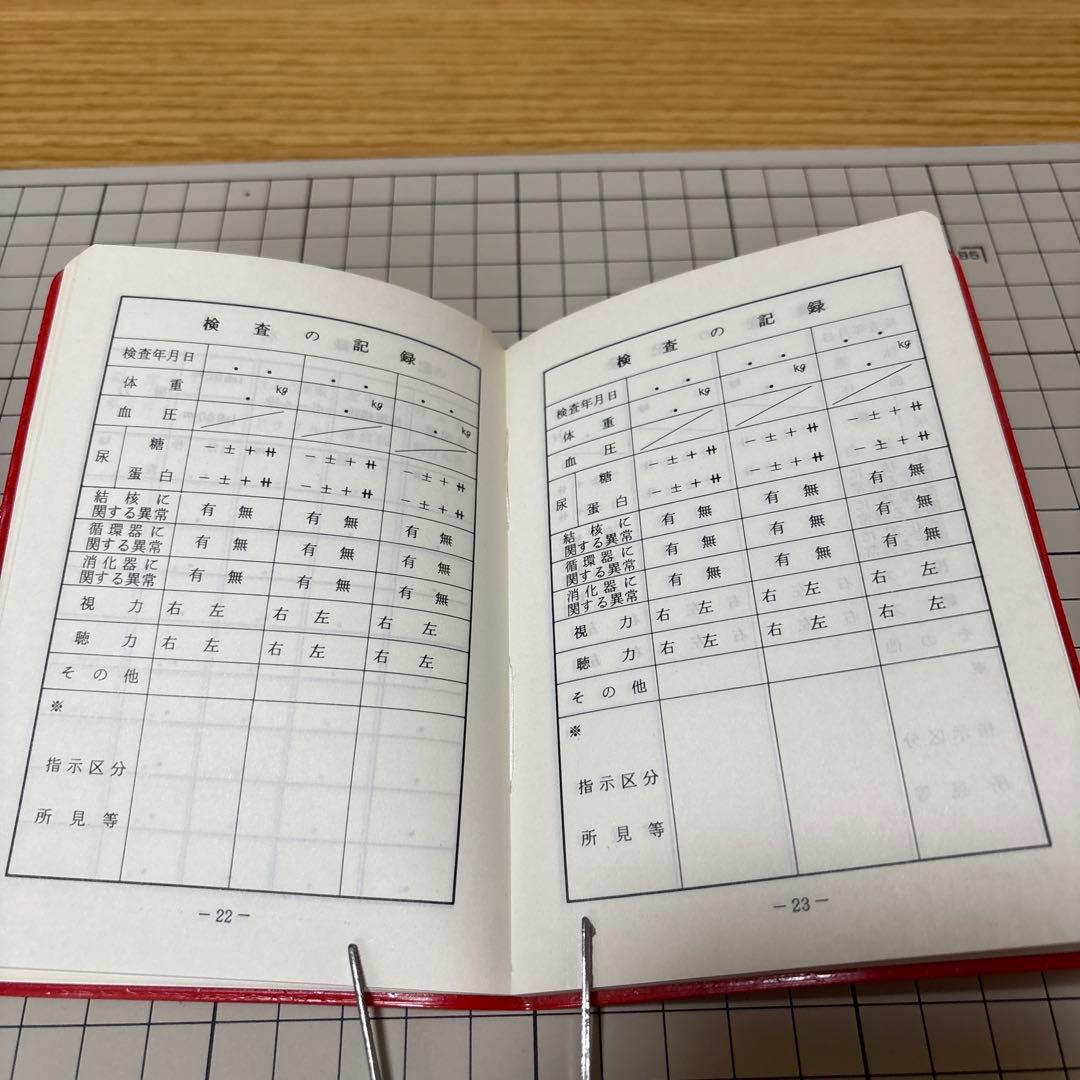 検査の記録
検査年月日 ・ ・ ・ ・ ・ ・
体重 ・ kg ・ kg ・ kg
血圧
尿 糖 － ± ＋ ⧺ － ± ＋ ⧺ － ± ＋ ⧺
蛋白 － ± ＋ ⧺ － ± ＋ ⧺ － ± ＋ ⧺
結核に
関する異常 有 無 有 無 有 無
循環器に
関する異常 有 無 有 無 有 無
消化器に
関する異常 有 無 有 無 有 無
視力 右 左 右 左 右 左
聴力 右 左 右 左 右 左
その他
※
指示区分
所見等
－22－
検査の記録
検査年月日 ・ ・ ・ ・ ・ ・
体重 ・ kg ・ kg ・ kg
血圧
尿 糖 － ± ＋ ⧺ － ± ＋ ⧺ － ± ＋ ⧺
蛋白 － ± ＋ ⧺ － ± ＋ ⧺ － ± ＋ ⧺
結核に
関する異常 有 無 有 無 有 無
循環器に
関する異常 有 無 有 無 有 無
消化器に
関する異常 有 無 有 無 有 無
視力 右 左 右 左 右 左
聴力 右 左 右 左 右 左
その他
※
指示区分
所見等
－23－